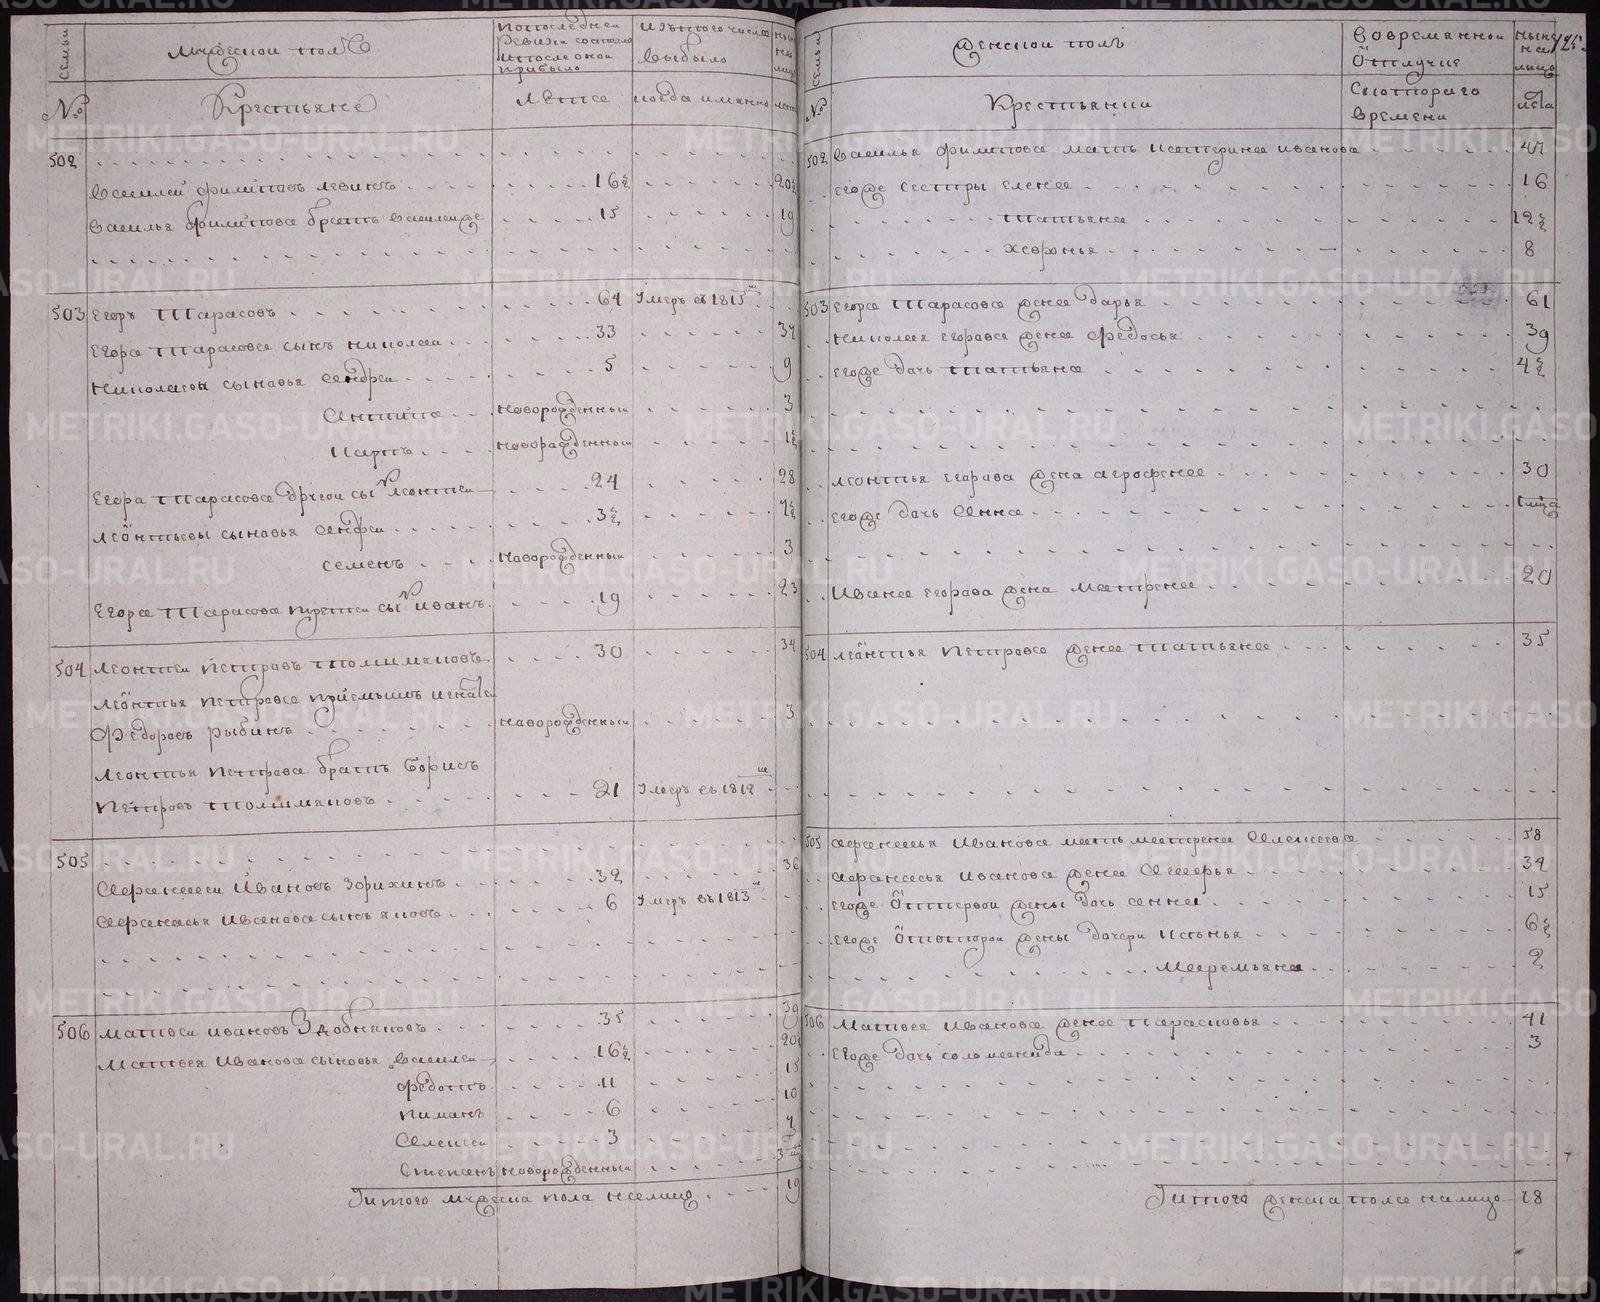 семьи
Мужескои полъ
По последнеи
ревизи состояло
и после онои
прибыло
Изъ того числа
выбыло
ныне
на
лицо
№
Крестьяне
Лета
когда имянно
лета
502
Василеи Филиповъ Левинъ 16½ 20½
Василья Филипова братъ Василеиже 15 19
503 Егоръ Тарасовъ 64 Умеръ въ 1815м
Егора Тарасова сынъ Николаи 33 37
Николаевы сыновья Андреи 5 9
Антипа новорожденныи 3
Карпъ новорожденныи 1½
Егора Тарасова другои сынъ Леонтеи 24 28
Леонтьевы сыновья Андреи 3½ 7½
Семенъ новорожденныи 3
Егора Тарасова третеи сынъ Иванъ 19 23
504 Леонтеи Петровъ Толшмяковъ 30 34
Леонтья Петрова приемышъ Игнатеи
Федоровъ Рыбинъ новорожденныи 3
Леонтья Петрова братъ Борисъ
Петровъ Толшмяковъ 21 Умеръ въ 1812м
505
Афанасеи Ивановъ Зорихинъ 32 36
Афанасья Иванова сынъ Яковъ 6 Умеръ въ 1813м
506 Матвеи Ивановъ Здобняковъ 35 39
Матвея Иванова сыновья Василеи 16½ 20½
Федотъ 11 15
Пиманъ 6 10
Алексеи 3 7
Степанъ новорожденныи 3
И итого мужеска пола налицо 19
семьи
Женскои полъ
Во временнои
отлучке
ныне
на
лицо
125
№
Крестьянки
Съ которого
времени
лета
502 Василья Филипова мать Катерина Иванова 47
Егоже сестры Елена 16
Татьяна 12½
Хевронья 8
503 Егора Тарасова жена Дарья 61
Николая Егорова жена Федосья 39
Егоже дочь Татьяна 4½
Леонтья Егорова жена Аграфена 30
Егоже дочь Анна
Ивана Егорова жена Матрена 20
504 Леонтья Петрова жена Татьяна 35
505 Афанасья Иванова мать Матрена Алексеева 58
Афанасья Иванова жена Дарья 32
Егоже от первои жены дочь Анна 15
Егоже от второи жены дочери Ксенья 6½
Маремьяна 2
506 Матвея Иванова жена Тарасковья 41
Егоже дочь Соломанида 3
И итого женска пола налицо 18